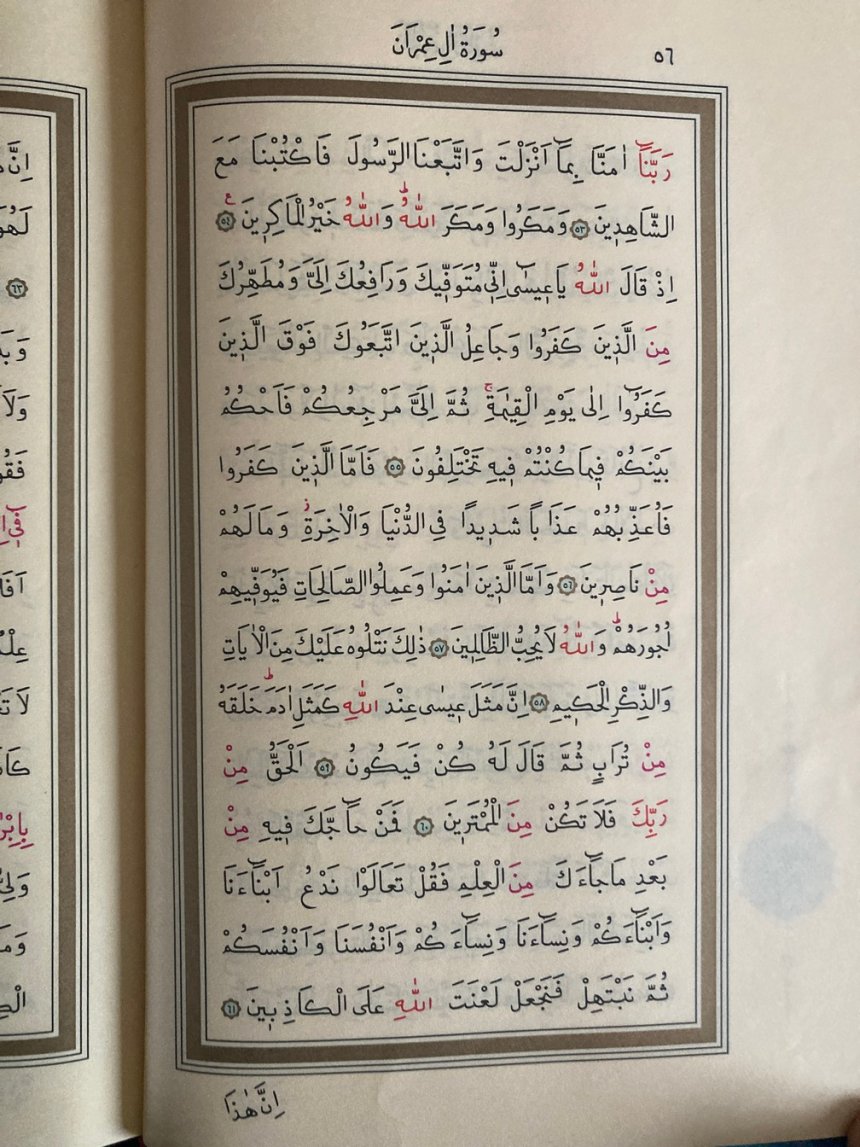 سُورَةُ اٰلِ عِمْرَانَ
٥٦
رَبَّنَٓا اٰمَنَّا بِمَٓا اَنْزَلْتَ وَاتَّبَعْنَا الرَّسُولَ فَاكْتُبْنَا مَعَ
الشَّاهِد۪ينَ ﴿٥٣﴾ وَمَكَرُوا وَمَكَرَ اللّٰهُۜ وَاللّٰهُ خَيْرُ الْمَاكِر۪ينَ۟ ﴿٥٤﴾
اِذْ قَالَ اللّٰهُ يَا ع۪يسٰٓى اِنّ۪ي مُتَوَفّ۪يكَ وَرَافِعُكَ اِلَيَّ وَمُطَهِّرُكَ
مِنَ الَّذ۪ينَ كَفَرُوا وَجَاعِلُ الَّذ۪ينَ اتَّبَعُوكَ فَوْقَ الَّذ۪ينَ
كَفَرُٓوا اِلٰى يَوْمِ الْقِيٰمَةِۚ ثُمَّ اِلَيَّ مَرْجِعُكُمْ فَاَحْكُمُ
بَيْنَكُمْ ف۪يمَا كُنْتُمْ ف۪يهِ تَخْتَلِفُونَ ﴿٥٥﴾ فَاَمَّا الَّذ۪ينَ كَفَرُوا
فَاُعَذِّبُهُمْ عَذَابًا شَد۪يدًا فِي الدُّنْيَا وَالْاٰخِرَةِۘ وَمَا لَهُمْ
مِنْ نَاصِر۪ينَ ﴿٥٦﴾ وَاَمَّا الَّذ۪ينَ اٰمَنُوا وَعَمِلُوا الصَّالِحَاتِ فَيُوَفّ۪يهِمْ
اُجُورَهُمْۜ وَاللّٰهُ لَا يُحِبُّ الظَّالِم۪ينَ ﴿٥٧﴾ ذٰلِكَ نَتْلُوهُ عَلَيْكَ مِنَ الْاٰيَاتِ
وَالذِّكْرِ الْحَك۪يمِ ﴿٥٨﴾ اِنَّ مَثَلَ ع۪يسٰى عِنْدَ اللّٰهِ كَمَثَلِ اٰدَمَۜ خَلَقَهُ
مِنْ تُرَابٍ ثُمَّ قَالَ لَهُ كُنْ فَيَكُونُ ﴿٥٩﴾ اَلْحَقُّ مِنْ
رَبِّكَ فَلَا تَكُنْ مِنَ الْمُمْتَر۪ينَ ﴿٦٠﴾ فَمَنْ حَٓاجَّكَ ف۪يهِ مِنْ
بَعْدِ مَا جَٓاءَكَ مِنَ الْعِلْمِ فَقُلْ تَعَالَوْا نَدْعُ اَبْنَٓاءَنَا
وَاَبْنَٓاءَكُمْ وَنِسَٓاءَنَا وَنِسَٓاءَكُمْ وَاَنْفُسَنَا وَاَنْفُسَكُمْ
ثُمَّ نَبْتَهِلْ فَنَجْعَلْ لَعْنَتَ اللّٰهِ عَلَى الْكَاذِب۪ينَ ﴿٦١﴾
اِنَّ هٰذَا